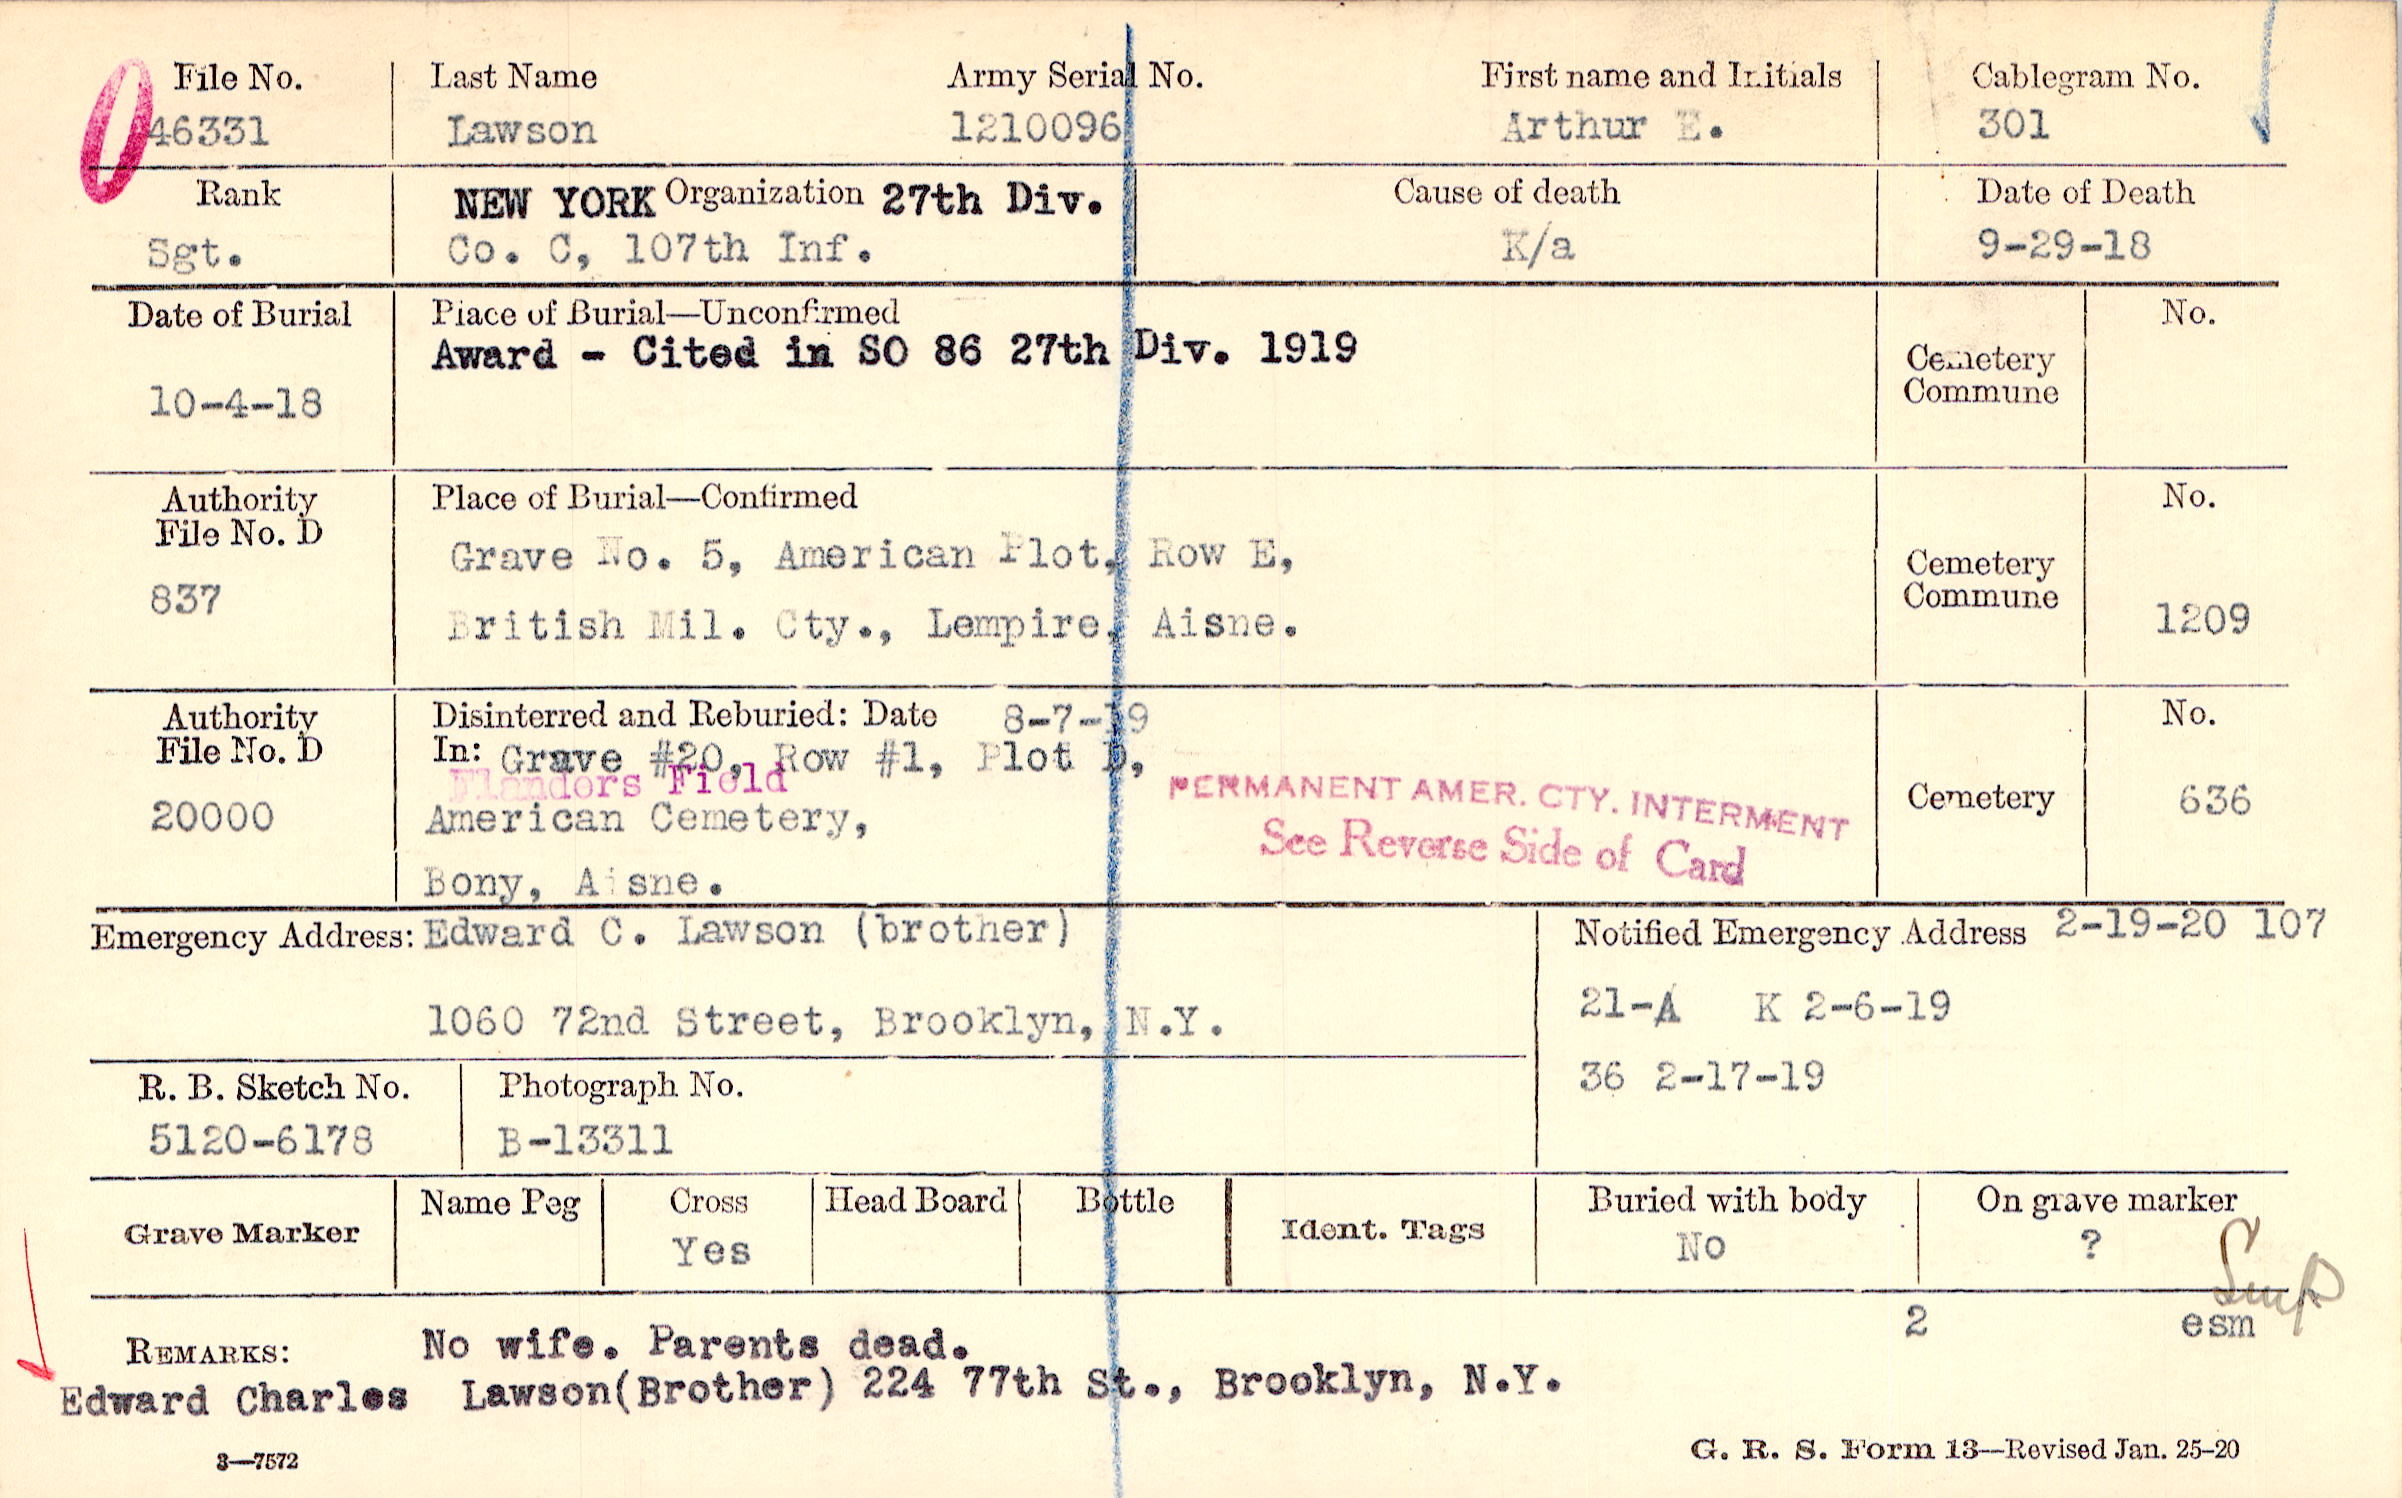 File No. Last Name Army Serial No. First name and Initials Cablegram No.
46331 Lawson 1210096 Arthur E. 301
Rank NEW YORK Organization 27th Div. Cause of death Date of Death
Sgt. Co. C, 107th Inf. K/a 9-29-18
Date of Burial Place of Burial—Unconfirmed No.
Award - Cited in SO 86 27th Div. 1919
Cemetery
Commune
10-4-18
Authority Place of Burial—Confirmed No.
File No. D
Grave No. 5, American Plot, Row E,
Cemetery
Commune
837
British Mil. Cty., Lempire, Aisne. 1209
Authority Disinterred and Reburied: Date 8-7-19 No.
File No. D In: Grave #20, Row #1, Plot D,
Flanders Field
PERMANENT AMER. CTY. INTERMENT
20000 American Cemetery, Cemetery 636
See Reverse Side of Card
Bony, Aisne.
Emergency Address: Edward C. Lawson (brother) Notified Emergency Address 2-19-20 107
21-A K 2-6-19
1060 72nd Street, Brooklyn, N.Y.
36 2-17-19
R. B. Sketch No. Photograph No.
5120-6178 B-13311
Grave Marker Name Peg Cross Head Board Bottle Ident. Tags Buried with body On grave marker
Yes No ?
2 esm
REMARKS: No wife. Parents dead.
Edward Charles Lawson(Brother) 224 77th St., Brooklyn, N.Y.
3—7572 G. R. S. Form 13—Revised Jan. 25-20